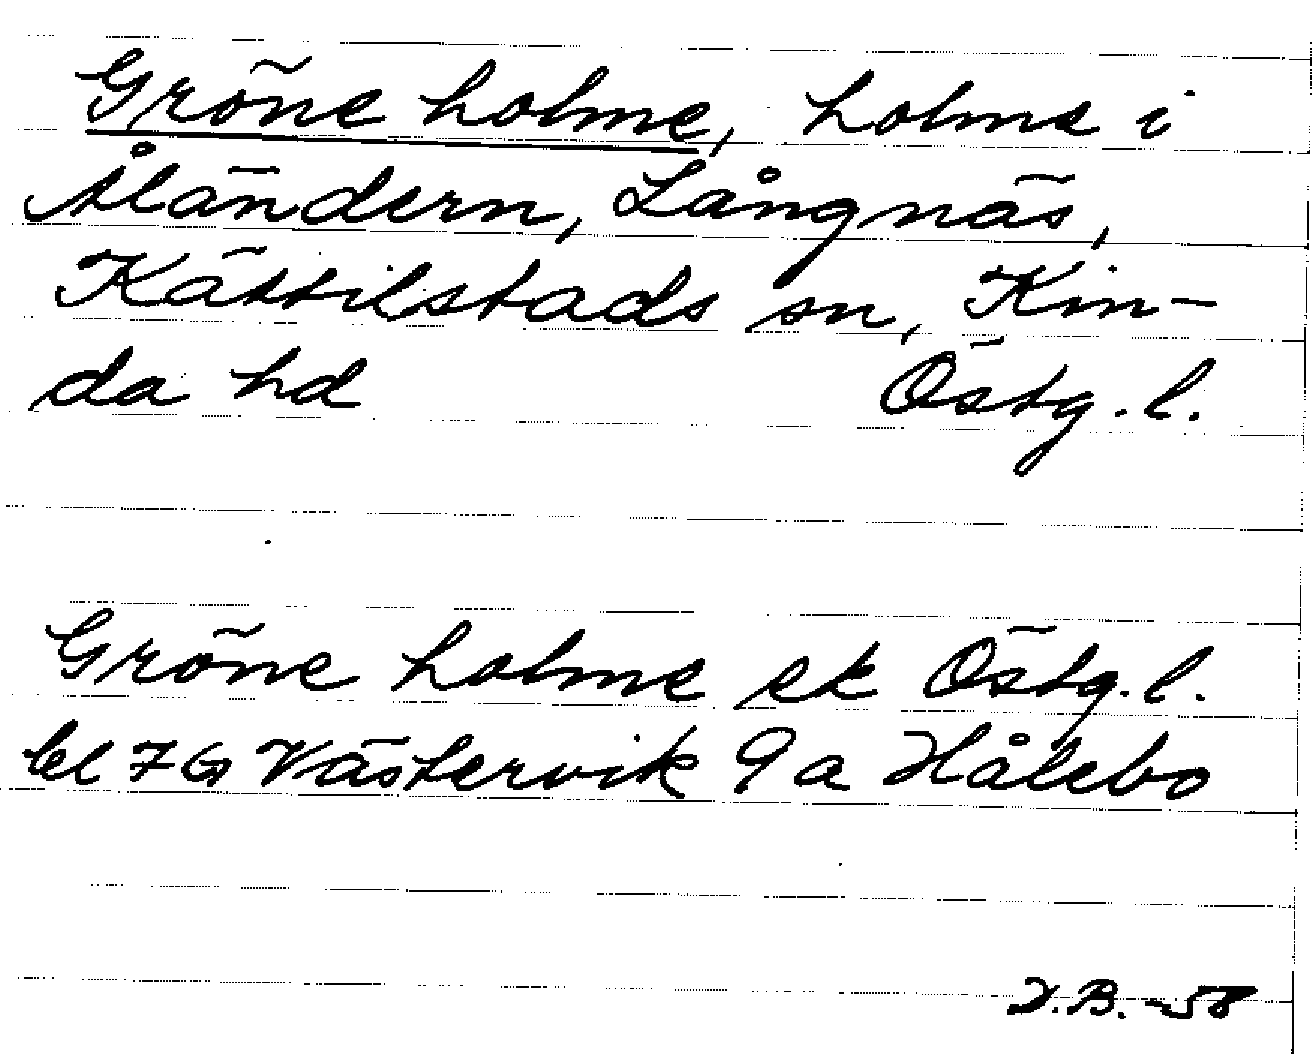 Gröne holme, holme i
Åländern, Långnäs,
Kättilstads sn, Kin-
da hd Östg. l.
Gröne holme ek Östg. l.
bl 7G Västervik 9a Hålebo
D.B. -58